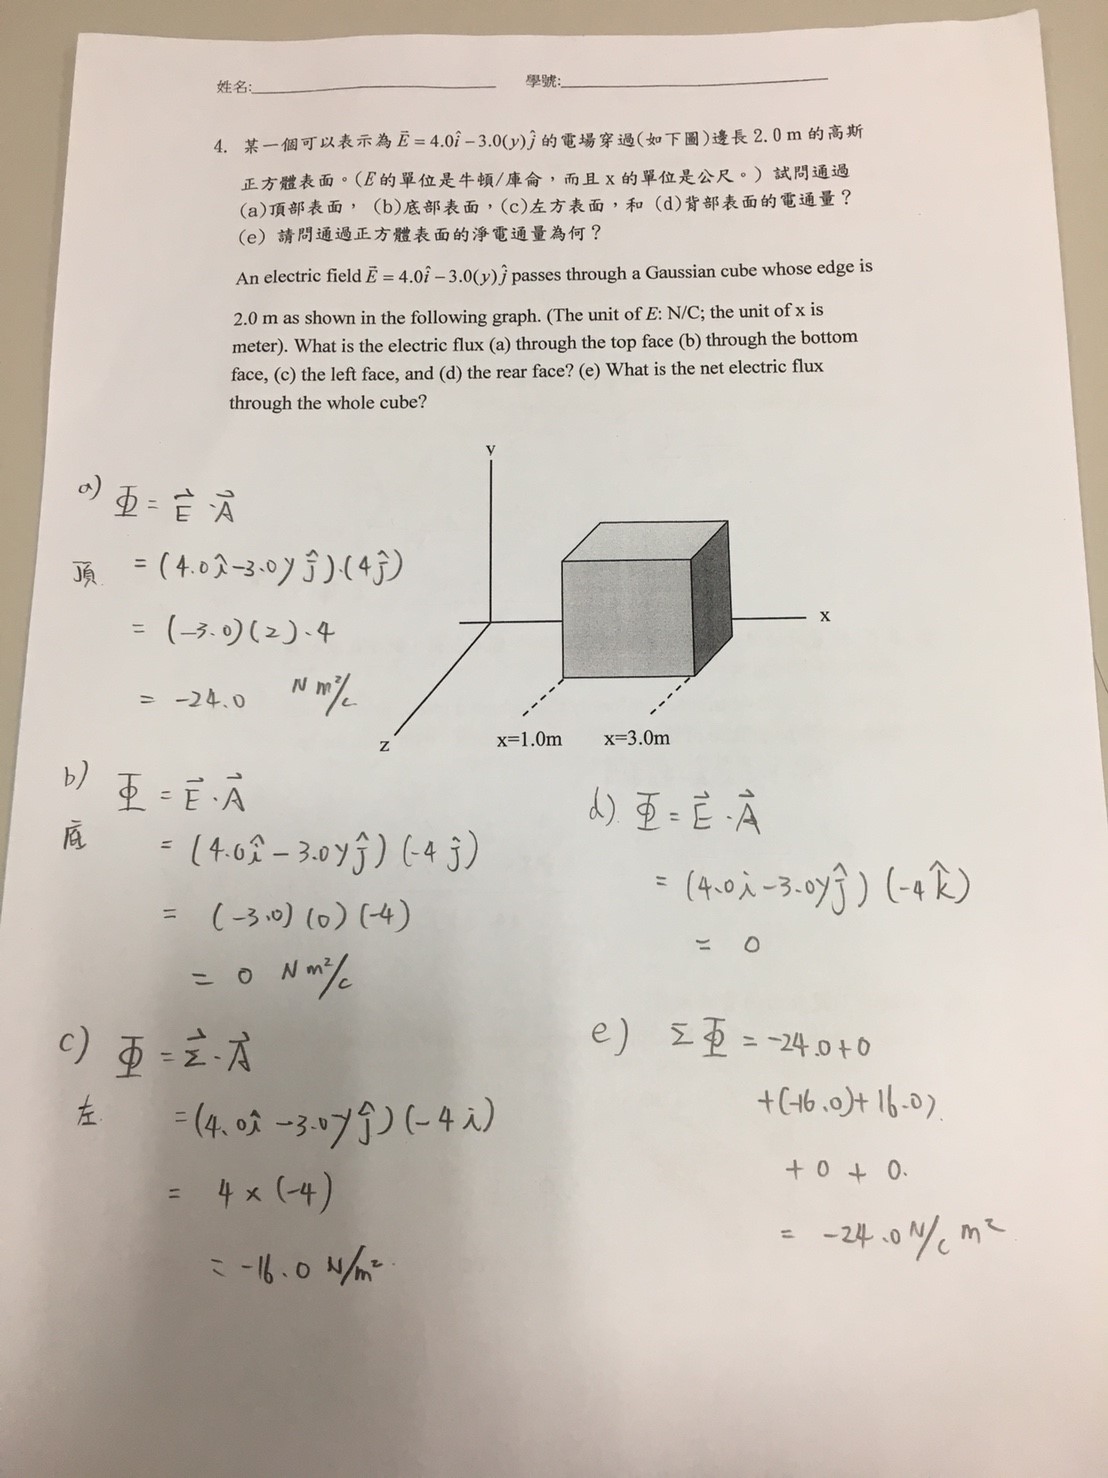 姓名: 學號:
4. 某一個可以表示為 E⃗ = 4.0î − 3.0(y)ĵ 的電場穿過(如下圖)邊長 2.0 m 的高斯
正方體表面。(E 的單位是牛頓/庫侖,而且 x 的單位是公尺。) 試問通過
(a)頂部表面, (b)底部表面,(c)左方表面,和 (d)背部表面的電通量?
(e) 請問通過正方體表面的淨電通量為何?
An electric field E⃗ = 4.0î − 3.0(y)ĵ passes through a Gaussian cube whose edge is
2.0 m as shown in the following graph. (The unit of E: N/C; the unit of x is
meter). What is the electric flux (a) through the top face (b) through the bottom
face, (c) the left face, and (d) the rear face? (e) What is the net electric flux
through the whole cube?
y
x
z
x=1.0m x=3.0m
a) Φ = E⃗ · A⃗
頂 = (4.0î − 3.0y ĵ)·(4ĵ)
= (−3.0)(2)·4
= −24.0 N m²/c
b) Φ = E⃗ · A⃗
底 = (4.0î − 3.0yĵ) (−4 ĵ)
= (−3.0) (0) (−4)
= 0 N m²/c
c) Φ = Σ⃗ · A⃗
左 = (4.0î − 3.0yĵ) (−4 i)
= 4 × (−4)
= −16.0 N/m²
d). Φ = E⃗ · A⃗
= (4.0i − 3.0yĵ) (−4 k̂)
= 0
e) Σ Φ = −24.0 + 0
+(−16.0) + 16.0)
+ 0 + 0.
= −24.0 N/c m²